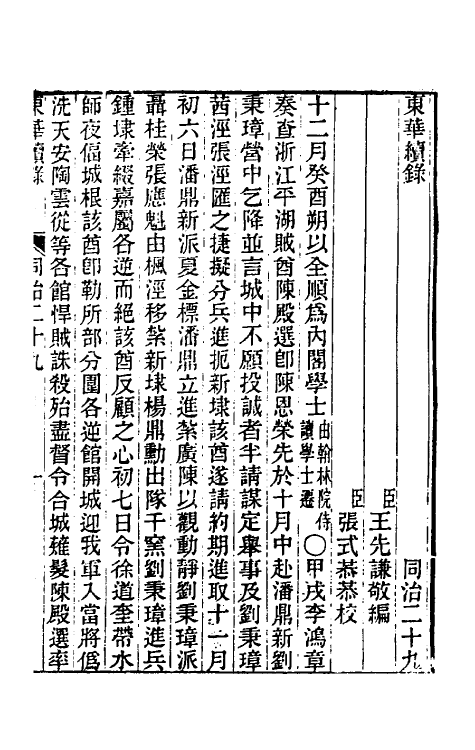 東華續錄
同治二十九
臣王先謙敬編
臣張式恭恭校
十二月癸酉朔以全順爲內閣學士由翰林院侍讀學士遷○甲戌李鴻章
奏查浙江平湖賊酋陳殿選卽陳恩榮先於十月中赴潘鼎新劉
秉璋營中乞降並言城中不願投誠者半請謀定舉事及劉秉璋
茜涇張涇匯之捷擬分兵進扼新埭該酋遂請約期進取十一月
初六日潘鼎新派夏金標潘鼎立進紮廣陳以觀動靜劉秉璋派
聶桂榮張應魁由楓涇移紮新埭楊鼎勳出隊千窰劉秉璋進兵
鍾埭牽綴嘉屬各逆而絕該酋反顧之心初七日令徐道奎帶水
師夜偪城根該酋卽勒所部分圍各逆館開城迎我軍入當將僞
洗天安陶雲從等各館悍賊誅殺殆盡督令合城薙髮陳殿選率
東華續錄
同治二十九
一